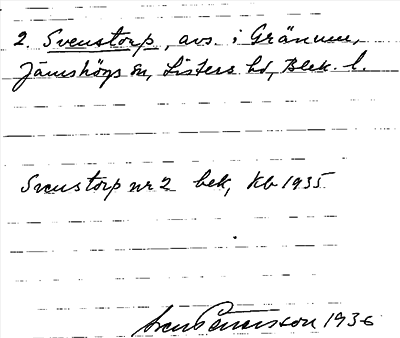 2. Svenstorp, avs. i Gränum,
Jämshögs sn, Listers hd, Blek. l.
Svenstorp nr 2 bek, kb 1935
Sven Benson 1936